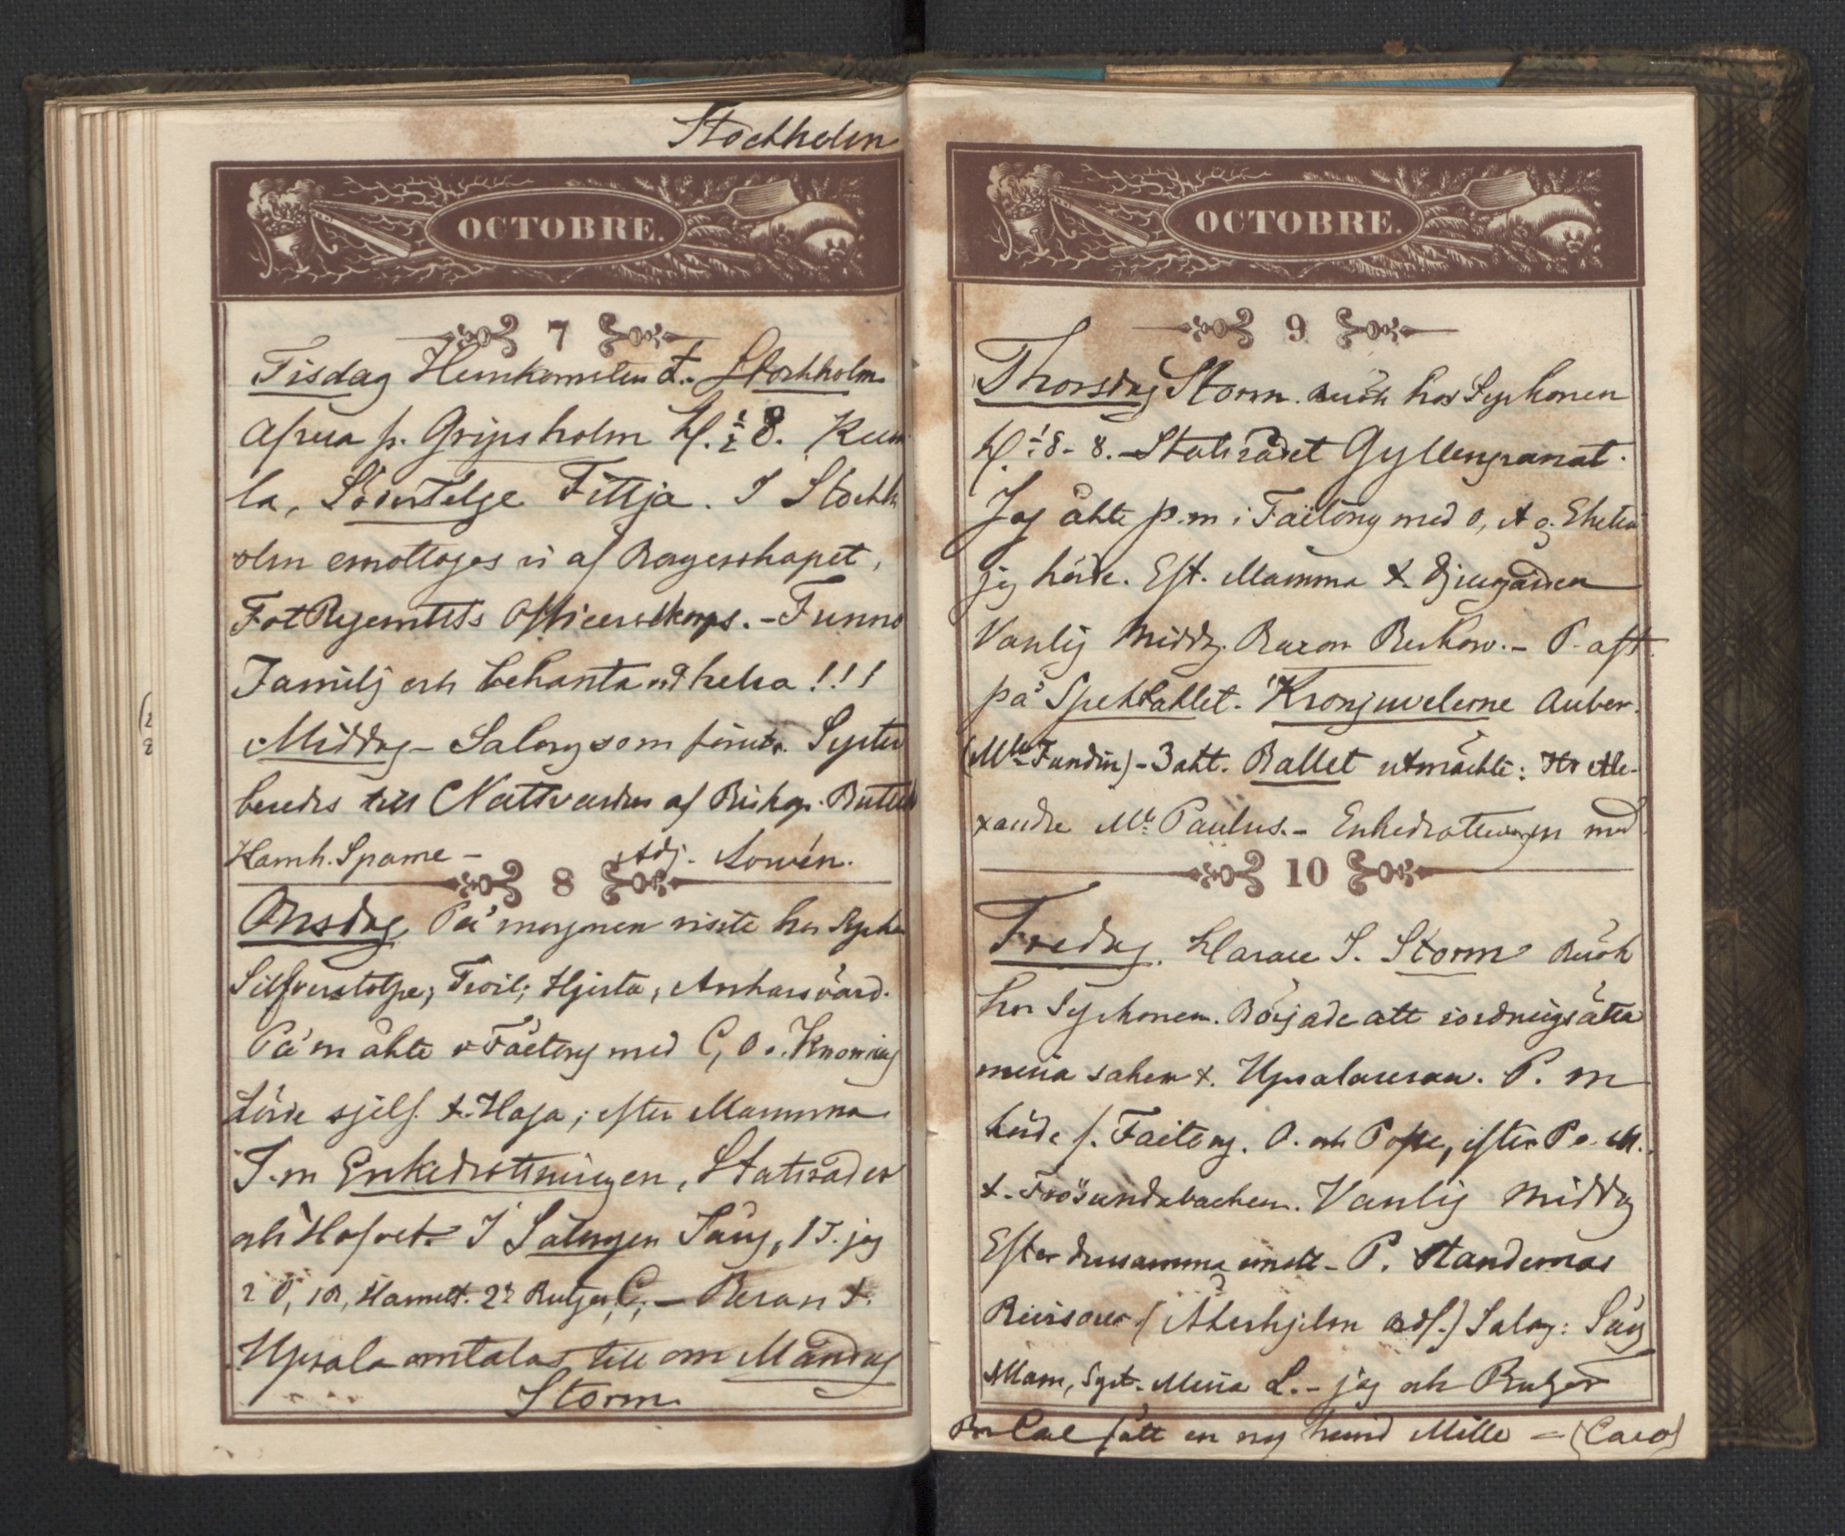 Stockholm
OCTOBRE.
7
Tisdag Hemkomsten t. Stockholm
Afresa fr. Gripsholm kl. ½ 8. Kum
la, Södertelge Fittja. I Stockh
olm emottogos vi af Borgerskapet,
Fot Regemtets Officerskorps. – Funno
Familj och bekanta vid helsa!!!
Middag – Salong som förut. Syster
beredes till Nattvarden af Biskop. Butsch
Kamh. Sparre – Adj. Lowén.
8
Onsdag På morgonen visite hos Psychen
Silfverstolpe; Troil; Hjerta; Ankarsvärd.
På m åkte v Faëtong med C, O o. Knorring
körde sjelf t. Haga; efter Mamma
T.m Enkedrottningen, Statsråder
och Hofvet. I Salongen Sång, 1 T. jag
2 O, 1 R, Hamilt. 2r Rutger C, – Resan t.
Upsala omtalas till om Måndag
Storm
OCTOBRE.
9
Thorsdag Storm. Besök hos Psychonen
Kl. ½ 8 - 8. – Statsrådet Gyllengranat.
Jag åkte p.m i Faëtong med O, A o.
jag körde. Eft. Mamma t. Djurgården
Vanlig Middg. Baron Beskow. – P. aft.
på Spektaklet. Kronjuvelerne Auber.
(Mlle Fundin) – 3 akt. Ballet utmärkte: Hr Ale-
xandre Mll Paulus. – Enkedrottningen med
10
Fredag. Klarare I. Storm Besök
hos Psychonen. Började att iordningsätta
mina saker t. Upsalaresan. P. m
körde s. Faëtong. O. och Pope, efter P o. M.
t. Frösundabacken. Vanlig Middag
Efter densamma emott – P. Ständernas
Revisorer. (Åkerhjelm ordf.) Salong: Sång
Mam, Syst. Mina L. – jag och Rutger
Bror Carl fått en ny hund Mille = (Caro)